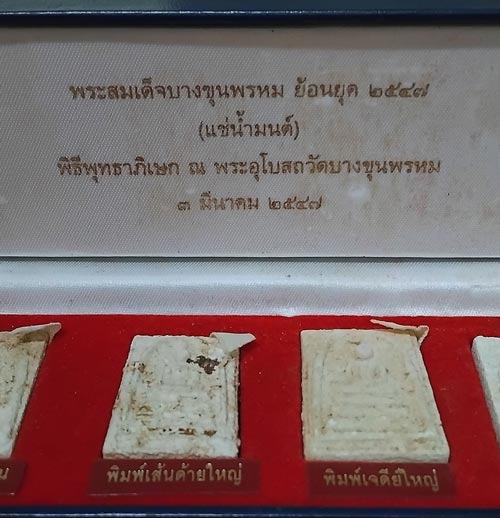 พระสมเด็จบางขุนพรหม ย้อนยุค ๒๕๔๗
(แช่น้ำมนต์)
พิธีพุทธาภิเษก ณ พระอุโบสถวัดบางขุนพรหม
๓ มีนาคม ๒๕๔๗
พิมพ์เส้นด้ายใหญ่
พิมพ์เจดีย์ใหญ่